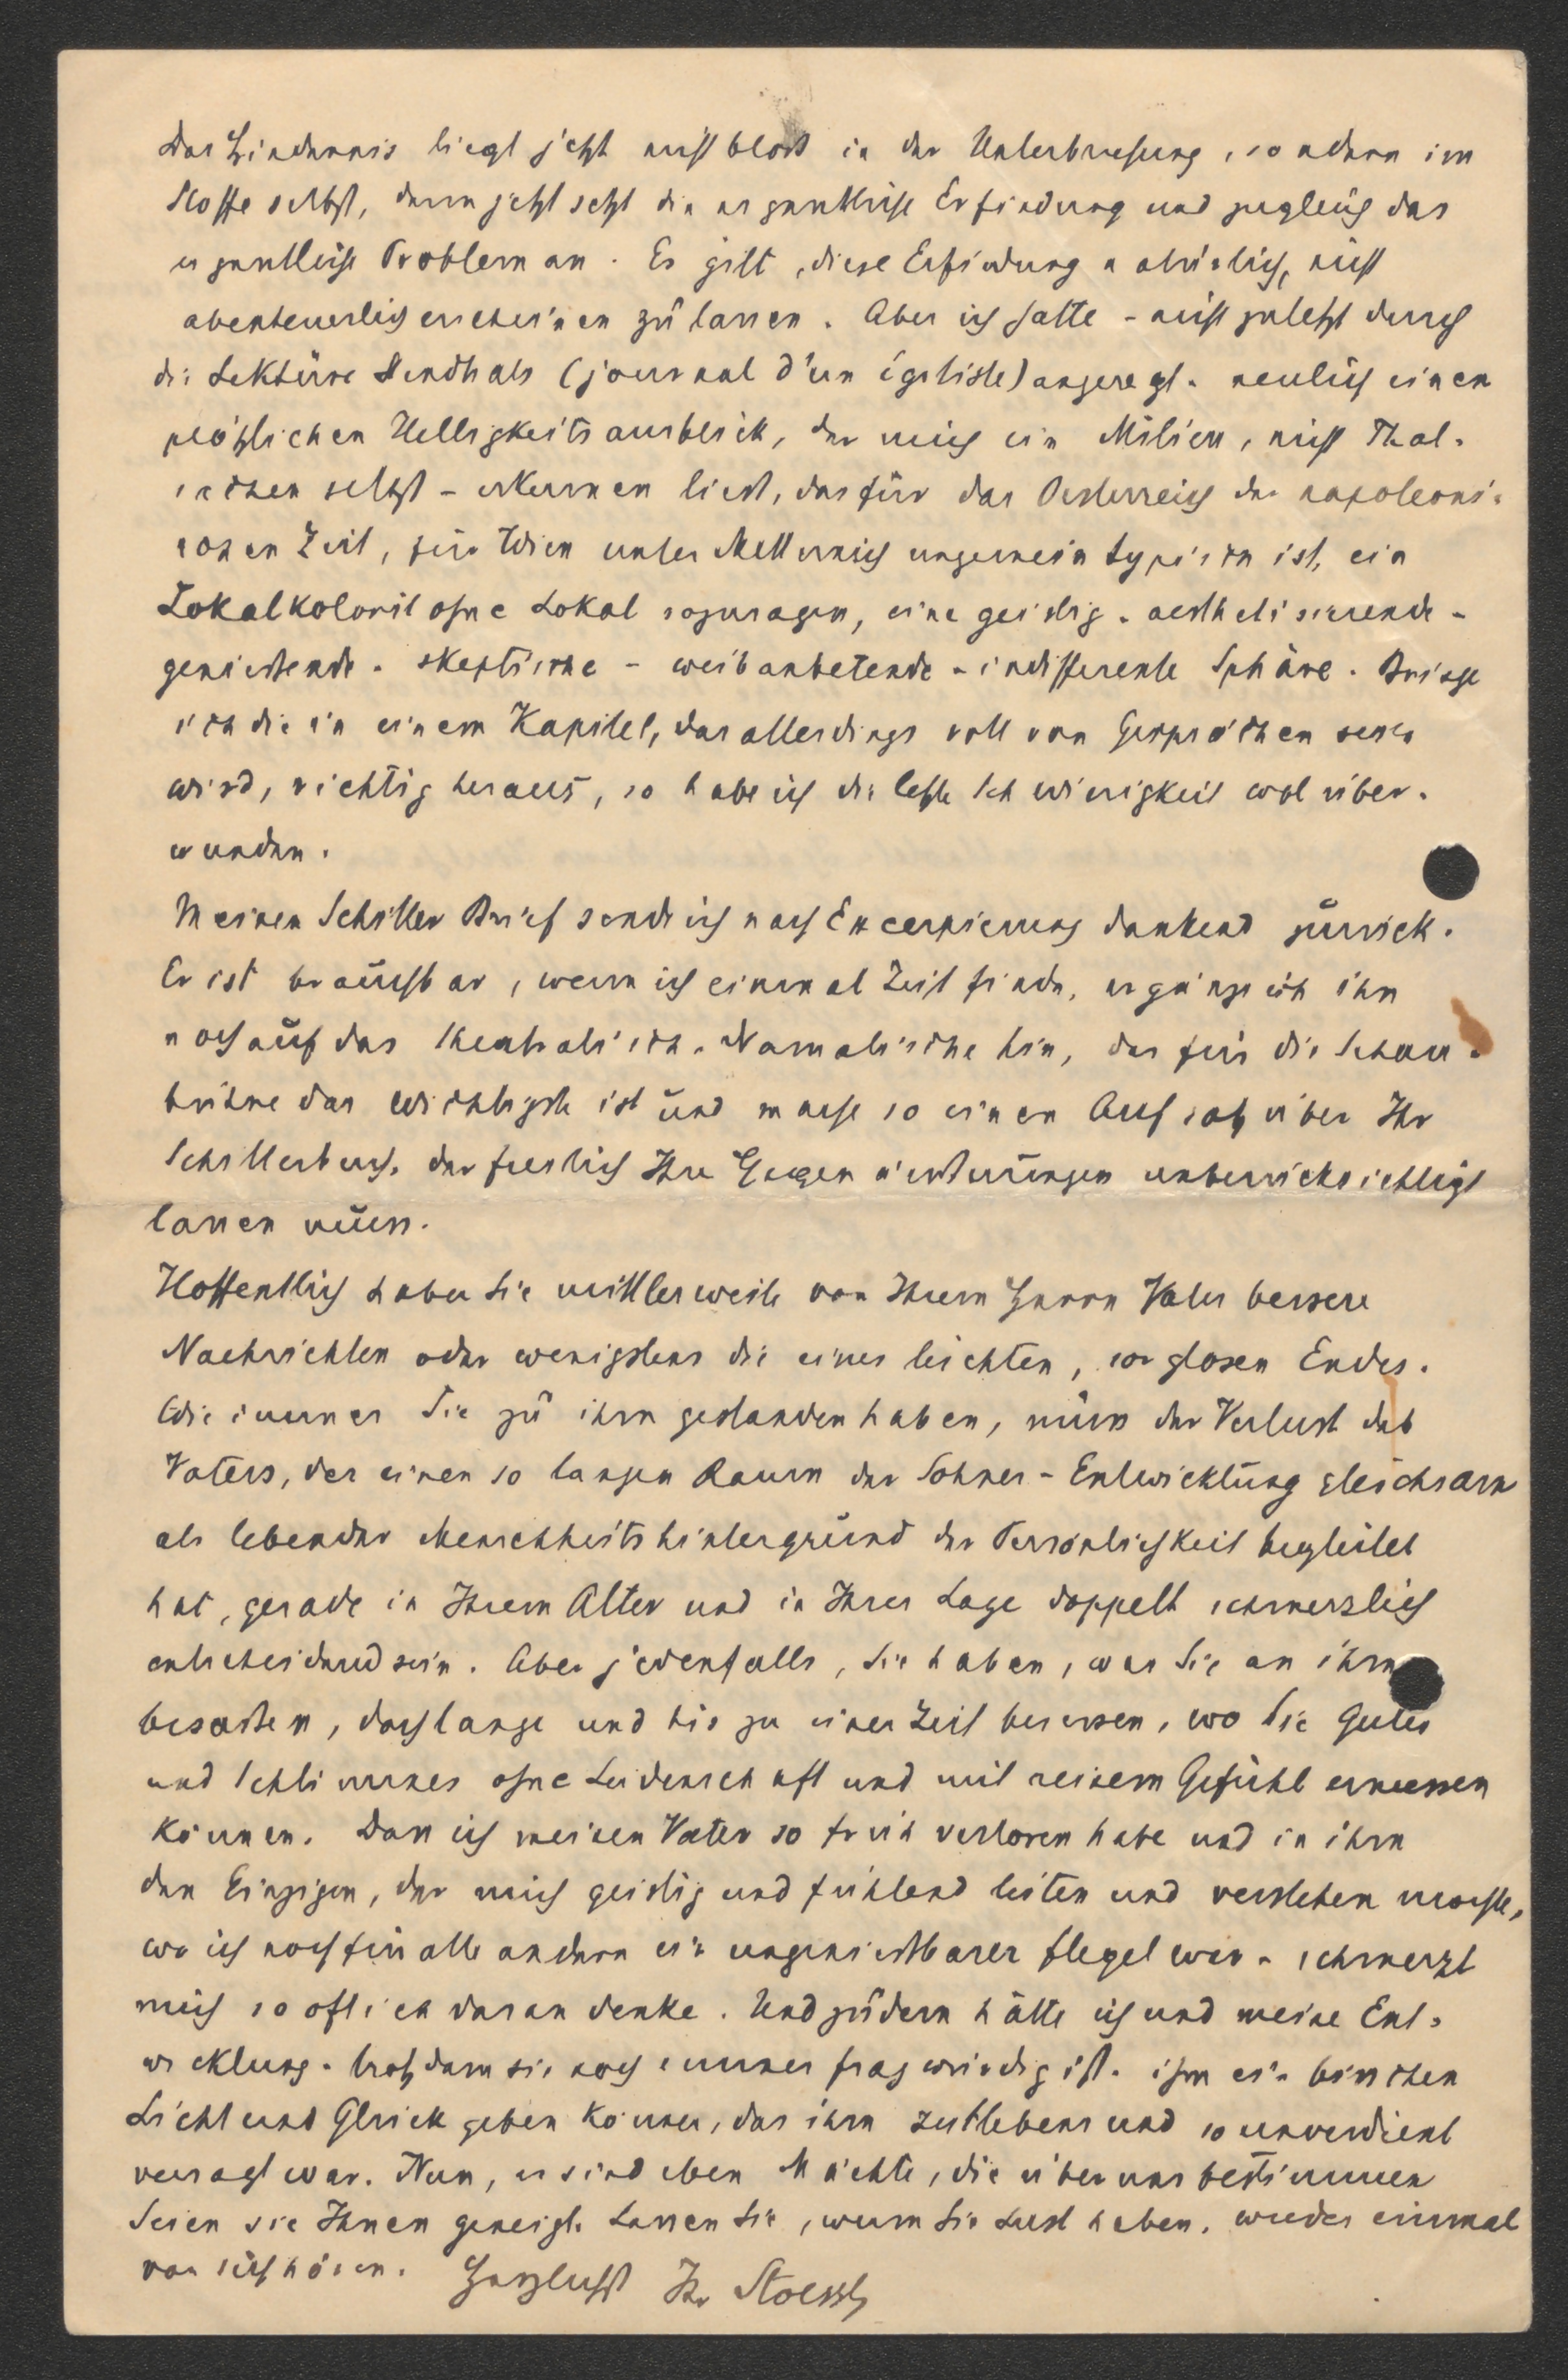 Das Hindernis liegt jetzt nicht bloß in der Unterbrechung, sondern im
Stoffe selbst, denn jetzt setzt die eigentliche Erfindung und zugleich das
eigentliche Problem an. Es gilt, diese Erfindung natürlich, nicht
abenteuerlich erscheinen zu lassen. Aber ich hatte - nicht zuletzt durch
die Lektüre Stendhals (journal d'un égotiste) angeregt - neulich einen
plötzlichen Helligkeitsausblick, der mich ein Milieu, nicht That-
sachen selbst - erkennen liess, das für das Oesterreich der napoleoni-
schen Zeit, für Wien unter Metternich ungemein typisch ist, ein
Lokalkolorit ohne Lokal sozusagen, eine geistig - aesthetisierende -
geniessende - skeptische - weibanbetende - indifferente Sphäre. Bringe
ich die in einem Kapitel, das allerdings voll von Gesprächen sein
wird, richtig heraus, so habe ich die letzte Schwierigkeit wol über-
wunden.
Meinen Schiller Brief sende ich nach Excerpierung dankend zurück.
Er ist brauchbar, wenn ich einmal Zeit finde, ergänze ich ihn
noch auf das theatralisch-dramatische hin, das für die Schau-
bühne das wichtigste ist und mache so einen Aufsatz über Ihr
Schillerbuch, der freilich Ihre Gegenäusserungen unberücksichtigt
lassen muss.
Hoffentlich haben Sie mittlerweile von Ihrem Herrn Vater bessere
Nachrichten oder wenigstens die eines leichten, sorglosen Endes.
Wie immer Sie zu ihm gestanden haben, muss der Verlust des
Vaters, der einen so langen Raum der Sohnes-Entwicklung gleichsam
als lebender Menschheitshintergrund der Persönlichkeit begleitet
hat, gerade in Ihrem Alter und in Ihrer Lage doppelt schmerzlich
entscheidend sein. Aber jedenfalls, Sie haben, was Sie an ihm
besassen, doch lange und bis zu einer Zeit besessen, wo Sie Gutes
und Schlimmes ohne Leidenschaft und mit reinem Gefühl ermessen
können. Dass ich meinen Vater so früh verloren habe und in ihm
den Einzigen, der mich geistig und fühlend leiten und verstehen mochte,
wo ich noch für alle andern ein ungeniessbarer Flegel war - schmerzt
mich so oft ich daran denke. Und zudem hätte ich und meine Ent-
wicklung - trotzdem sie noch immer fragwürdig ist - ihm ein bisschen
Licht und Glück geben können, das ihm zeitlebens und so unverdient
versagt war. Nun, es sind eben Mächte, die über uns bestimmen
Seien sie Ihnen geneigt. Lassen Sie, wenn Sie Lust haben, wieder einmal
von sich hören. Herzlichst Ihr Stoessl